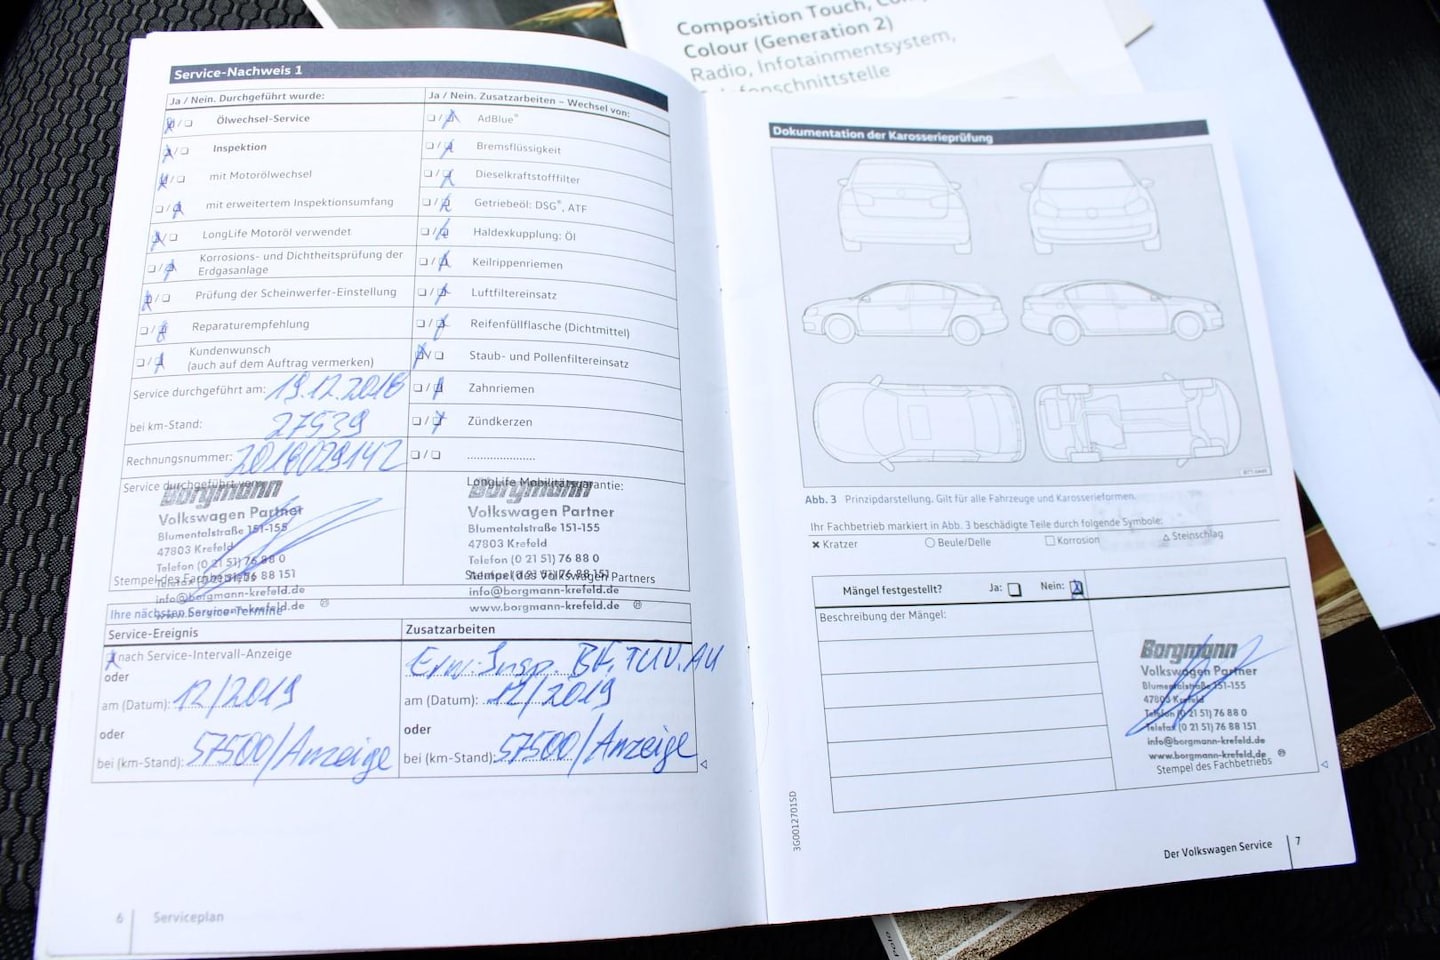 Composition Touch,
Colour (Generation 2)
Radio, Infotainmentsystem,
Service-Nachweis 1
Ja / Nein. Durchgeführt wurde:
Ja / Nein. Zusatzarbeiten – Wechsel von:
Ölwechsel-Service
AdBlue®
Inspektion
Bremsflüssigkeit
mit Motorölwechsel
Dieselkraftstofffilter
mit erweitertem Inspektionsumfang
Getriebeöl: DSG®, ATF
LongLife Motoröl verwendet
Haldexkupplung: Öl
Korrosions- und Dichtheitsprüfung der
Erdgasanlage
Keilrippenriemen
Prüfung der Scheinwerfer-Einstellung
Luftfiltereinsatz
Reparaturempfehlung
Reifenfüllflasche (Dichtmittel)
Kundenwunsch
(auch auf dem Auftrag vermerken)
Staub- und Pollenfiltereinsatz
Service durchgeführt am: 19.12.2018
Zahnriemen
bei km-Stand: 27539
Zündkerzen
Rechnungsnummer: 2018029142
....................
Service durchgeführt von:
LongLife Mobilitätsgarantie:
Borgmann
Volkswagen Partner
Blumentalstraße 151-155
47803 Krefeld
Telefon (0 21 51) 76 88 0
Telefax (0 21 51) 76 88 151
Stempel des Fachbetriebs
info@borgmann-krefeld.de
www.borgmann-krefeld.de
Borgmann
Volkswagen Partner
Blumentalstraße 151-155
47803 Krefeld
Telefon (0 21 51) 76 88 0
Telefax (0 21 51) 76 88 151
Stempel des Volkswagen Partners
info@borgmann-krefeld.de
www.borgmann-krefeld.de
Ihre nächsten Service-Termine
Service-Ereignis
Zusatzarbeiten
nach Service-Intervall-Anzeige
Erw. Insp. BF, TÜV. AU
oder
am (Datum): 12/2019
am (Datum): 12/2019
oder
oder
bei (km-Stand): 57500/Anzeige
bei (km-Stand): 57500/Anzeige
6 Serviceplan
Dokumentation der Karosserieprüfung
Abb. 3 Prinzipdarstellung. Gilt für alle Fahrzeuge und Karosserieformen.
Ihr Fachbetrieb markiert in Abb. 3 beschädigte Teile durch folgende Symbole:
Kratzer Beule/Delle Korrosion Steinschlag
Mängel festgestellt? Ja: Nein:
Beschreibung der Mängel:
Borgmann
Volkswagen Partner
Blumentalstraße 151-155
47803 Krefeld
Telefon (0 21 51) 76 88 0
Telefax (0 21 51) 76 88 151
info@borgmann-krefeld.de
www.borgmann-krefeld.de
Stempel des Fachbetriebs
3G0012701SD
Der Volkswagen Service 7